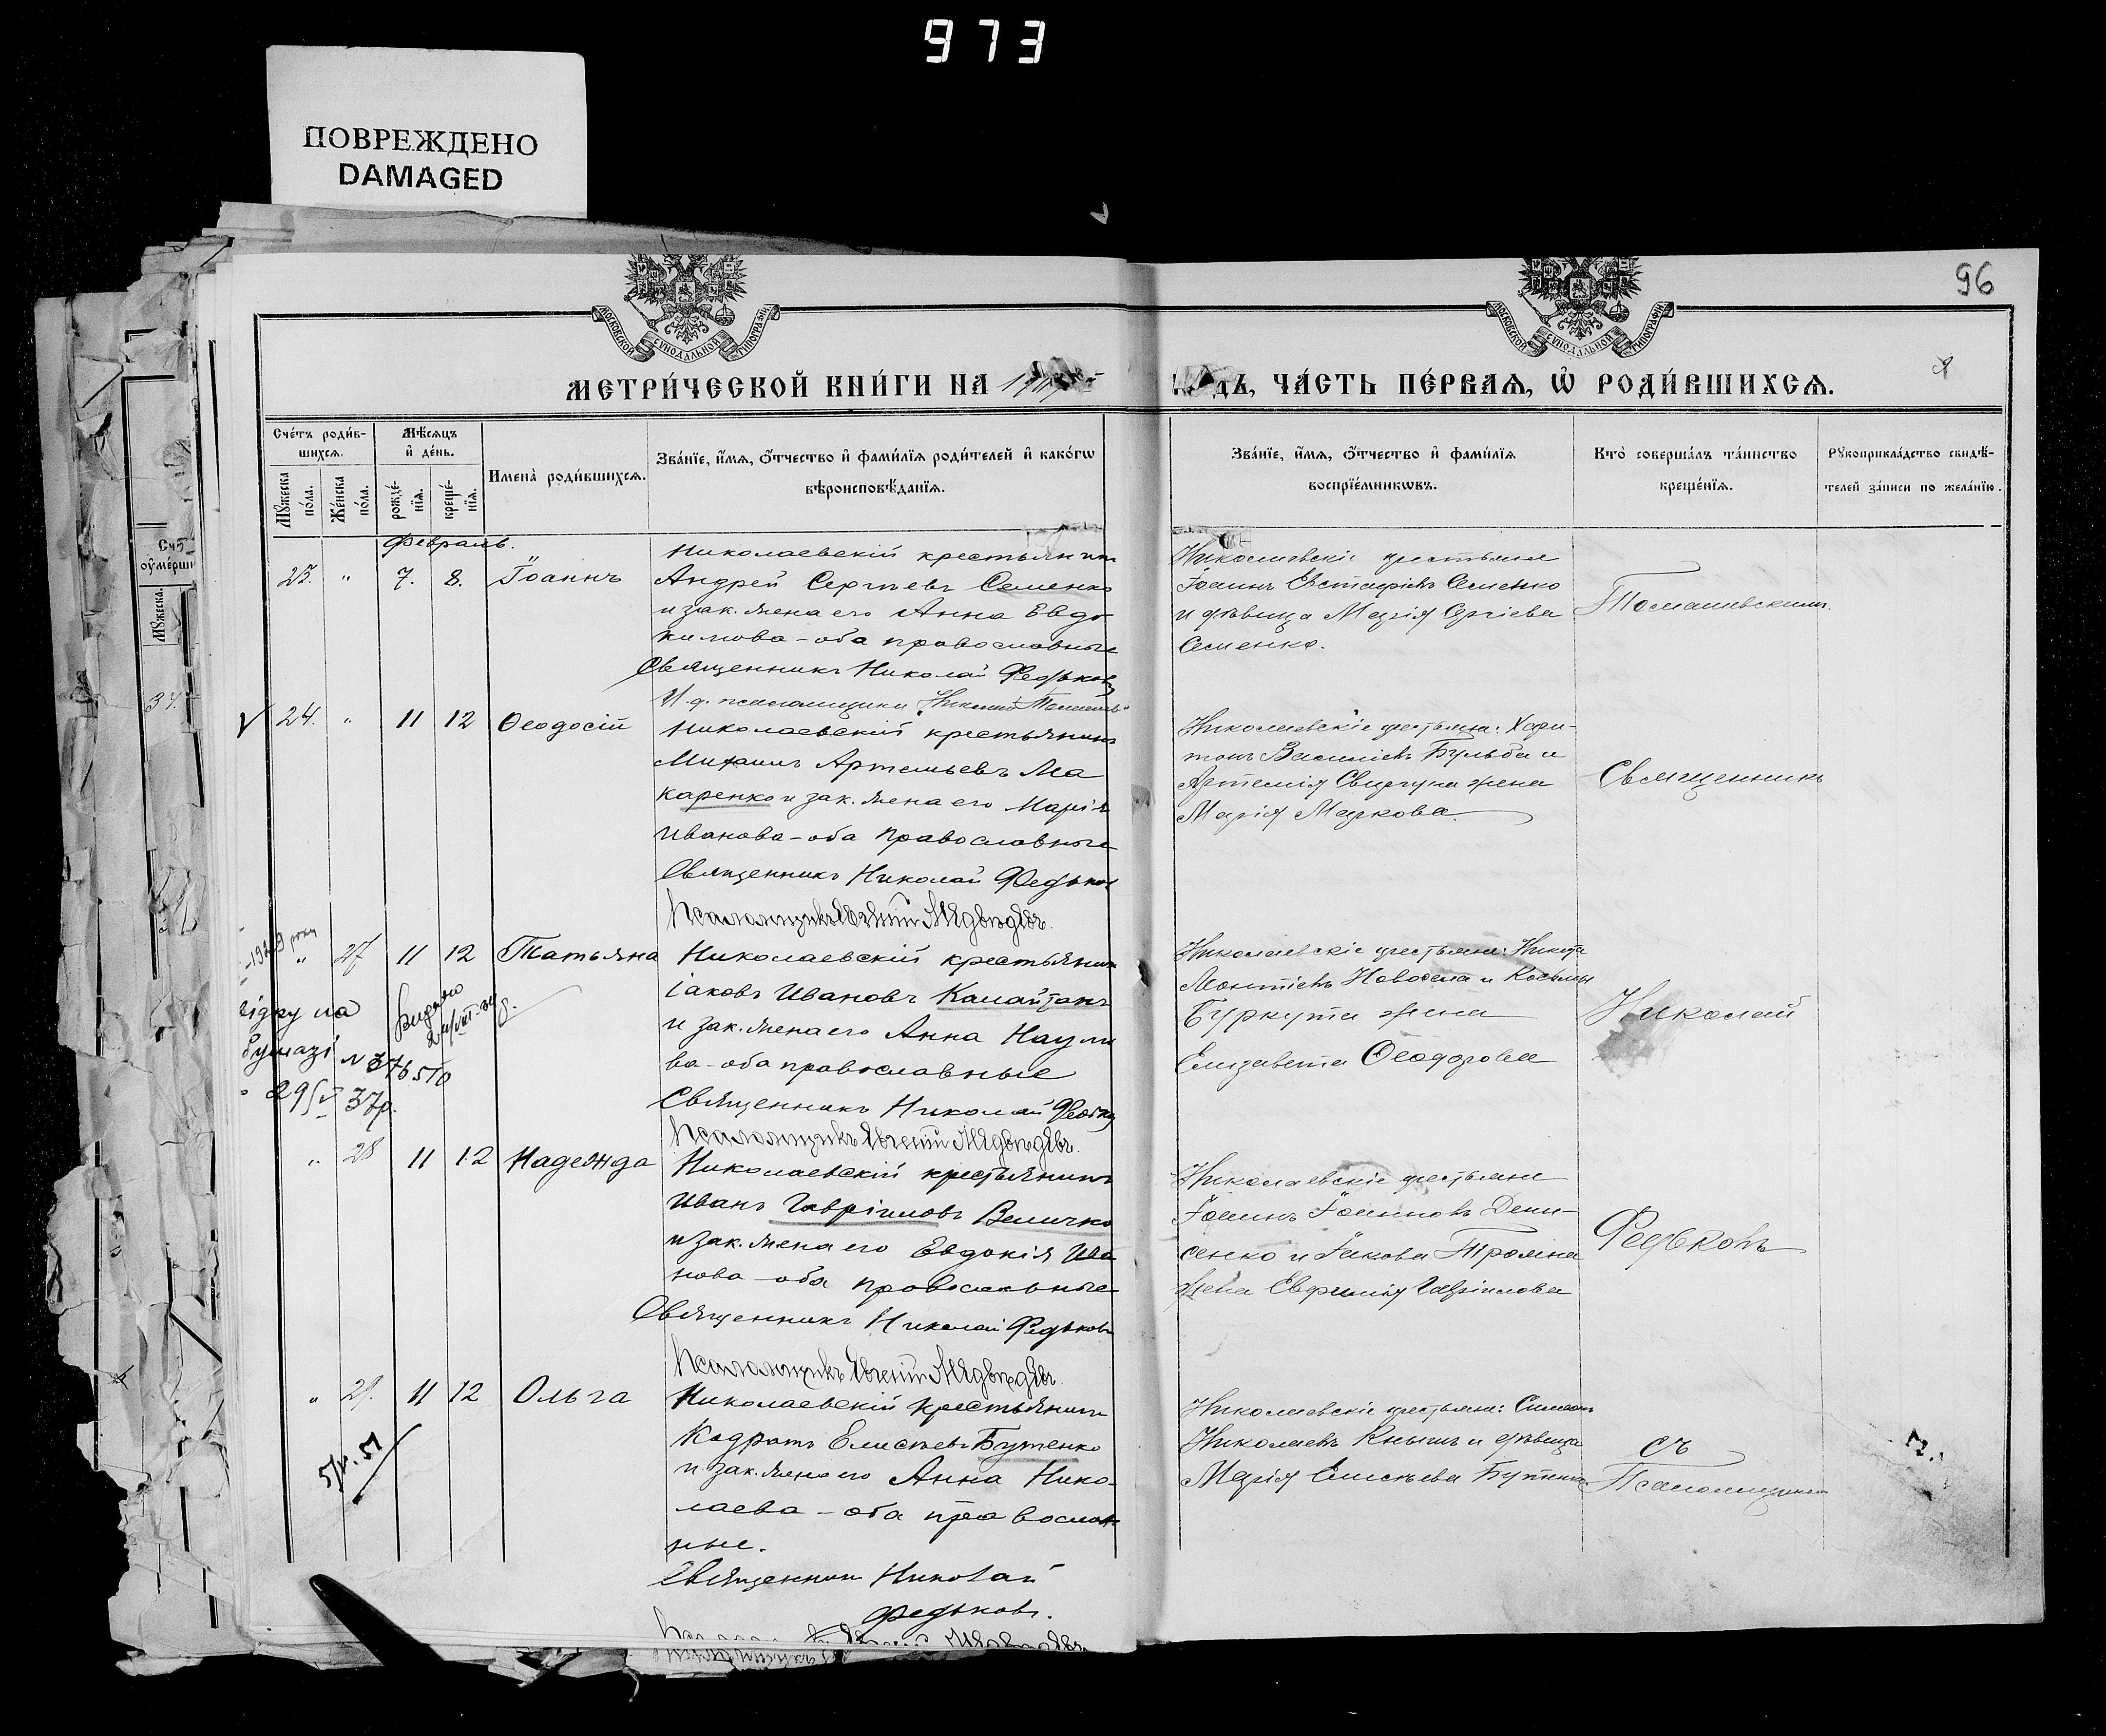 973
ПОВРЕЖДЕНО
DAMAGED
96
МОСКОВСКОЙ СѴНОДАЛЬНОЙ ТИПОГРАФІИ
МОСКОВСКОЙ СѴНОДАЛЬНОЙ ТИПОГРАФІИ
МЕТРИ́ЧЕСКОЙ КНИ́ГИ НА
ДЪ, ЧА́СТЬ ПЕ́РВАѦ, Ѡ҆ РОДИ́ВШИХСѦ.
Сче́тъ роди́в-
шихсѧ.
Мꙋ́жеска по́ла.
Же́нска по́ла.
Мѣ́сѧцъ
и҆ де́нь.
рожде́-
нїѧ.
креще́-
нїѧ.
Имена̀ роди́вшихсѧ.
Зва́нїе, и҆́мѧ, ѻ҆́тчество и҆ фами́лїѧ роди́телей и҆ како́гѡ
вѣроисповѣ́данїѧ.
Зва́нїе, и҆́мѧ, ѻ҆́тчество и҆ фами́лїѧ
воспрїе́мникѡвъ.
Кто̀ соверша́лъ та́инство
креще́нїѧ.
Рꙋкоприкла́дство свидѣ́-
телей за́писи по жела́нїю.
Счѣ
оу҆ме́рши
Мꙋ́жеска.
Февраль.
23. " 7. 8. Іоаннъ
Николаевскій крестьянин
Андрей Сергіевъ Семенко
и зак. жена его Анна Евдо
кимова - оба православные
Священникъ Николай Федьковъ
И. д. псаломщика Николай
Николаевскіе крестьяне
Іоаннъ Евстафіевъ Семенко
и дѣвица Марія Сергіева
Семенко.
24. " 11 12 Ѳеодосій
Николаевскій крестьянинъ
Михаилъ Артемьевъ Ма
каренко и зак. жена его Марія
Иванова - оба православные
Священникъ Николай Федьков
Псаломщикъ Евгеній Медвѣдевъ.
Николаевскіе крестьяне: Хари-
тонъ Васильевъ Бульба и
Артемія жена
Марія Маркова
Священникъ
" 27 11 12 Татьяна
Николаевскій крестьянин
Іаковъ Ивановъ Калайтанъ
и зак. жена его Анна Наумо
ва - оба православные
Священникъ Николай Федьков
Псаломщикъ Евгеній Медвѣдевъ.
Николаевскіе крестьяне: Никита
Леонтіевъ и Косьмы
Буркута жена
Елизавета Ѳеодорова
Николай
Видано
№ 376510
37р.
" 28 11 12 Надежда
Николаевскій крестьянинъ
Иванъ Гавріиловъ Величко
и зак. жена его Евдокія Ива
нова - оба православные
Священникъ Николай Федьковъ
Псаломщикъ Евгеній Медвѣдевъ.
Николаевскіе крестьяне
Іоаннъ Іоанновъ Дени-
сенко и Іакова
жена Евфимія Гавріилова
Федьковъ
" 29. 11 12 Ольга
Николаевскій крестьянинъ
Кодратъ Елисѣевъ Бутенко
и зак. жена его Анна Нико-
лаева - оба православ
ные.
Священник Николай
Федьковъ.
Николаевскіе крестьяне: Симеонъ
Николаевъ Кнышъ и дѣвица
Марія Елисѣева Бутенко
съ
Псаломщикомъ